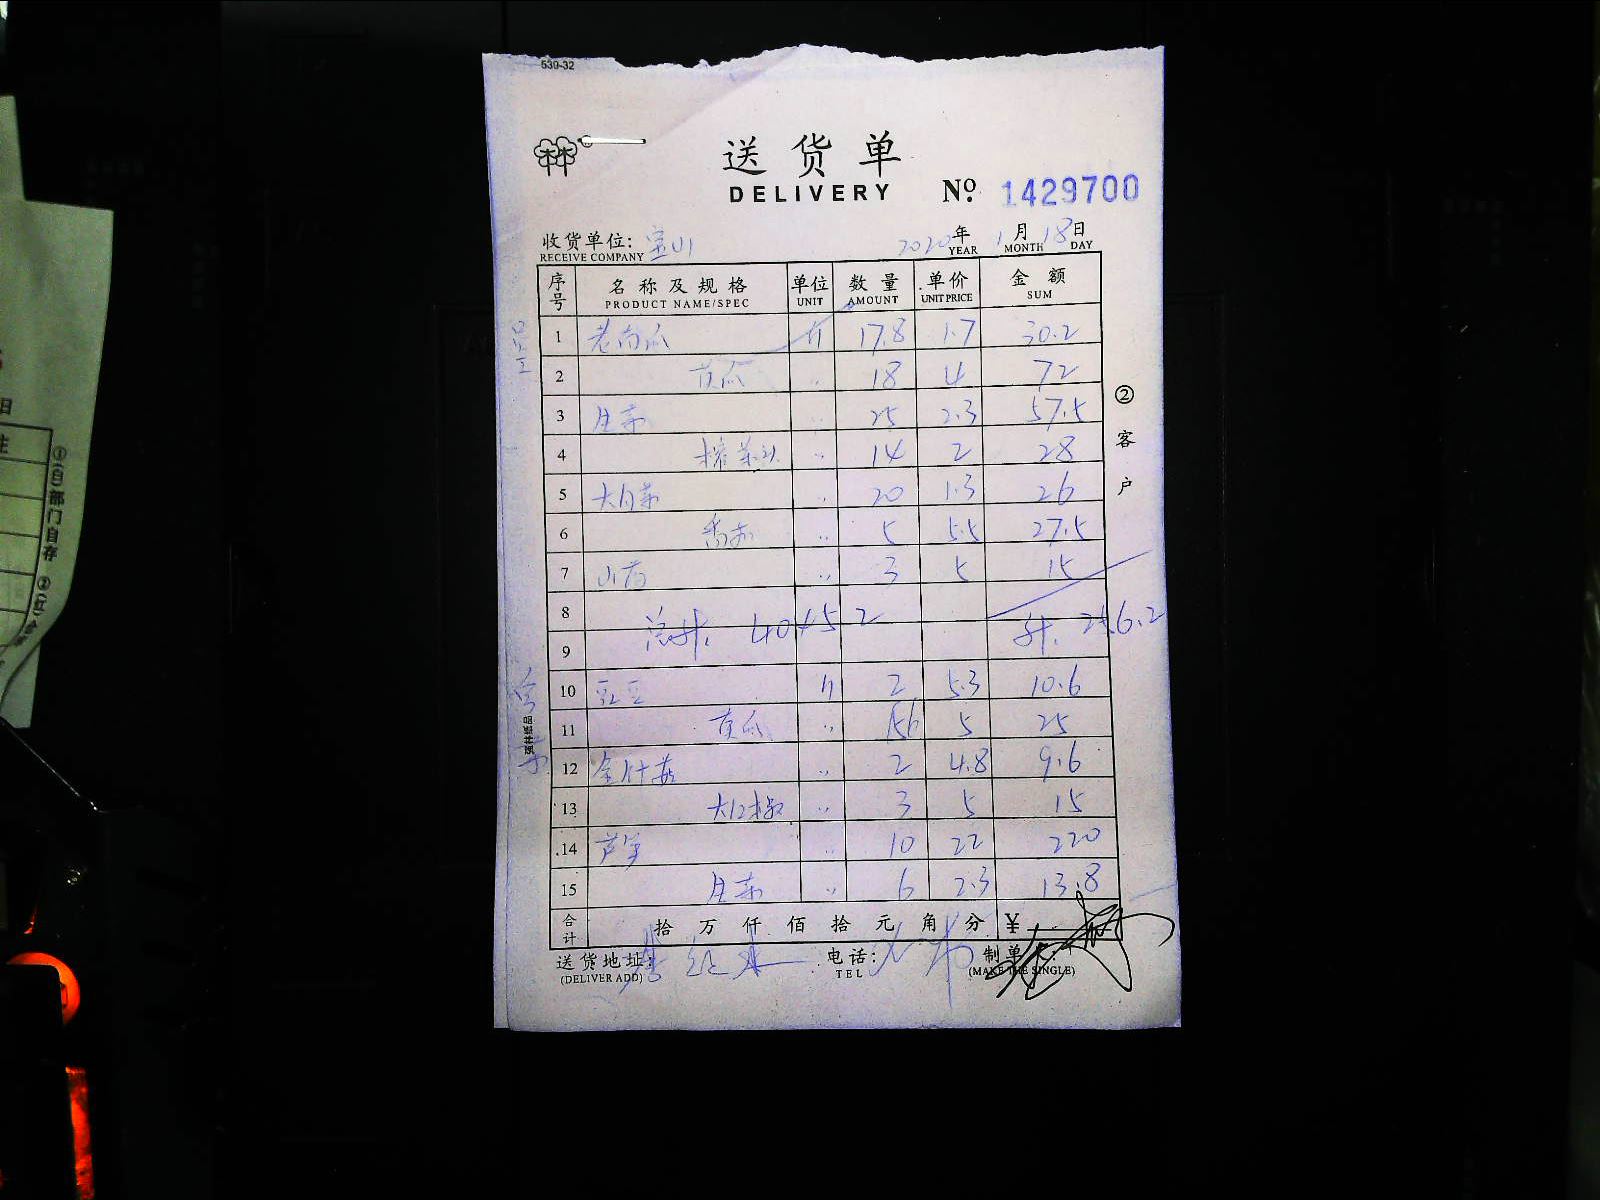 539-32
送货单
DELIVERY
№. 1429700
收货单位: 宝山
RECEIVE COMPANY
2020年 1月 18日
YEAR MONTH DAY
序号 名称及规格 单位 数量 单价 金额
PRODUCT NAME/SPEC UNIT AMOUNT UNIT PRICE SUM
1 老南瓜 斤 17.8 1.7 30.2
2 黄瓜 〃 18 4 72
3 生菜 〃 25 2.3 57.5
4 榨菜头 〃 14 2 28
5 大白菜 〃 20 1.3 26
6 香芹 〃 5 5.5 27.5
7 山药 〃 3 5 15
8
9
总计. 计. 256.2
10 豇豆 斤 2 5.3 10.6
11 黄瓜 〃 5 25
12 金针菇 〃 2 4.8 9.6
13 大红椒 〃 3 5 15
14 芦笋 〃 10 22 220
15 生菜 〃 6 2.3 13.8
合计 拾 万 仟 佰 拾 元 角 分 ¥
送货地址:
(DELIVER ADD)
电话:
TEL
制单
(MAKE THE SINGLE)
②客户
强林纸品
日
注
①(白)部门自存 ②(红)